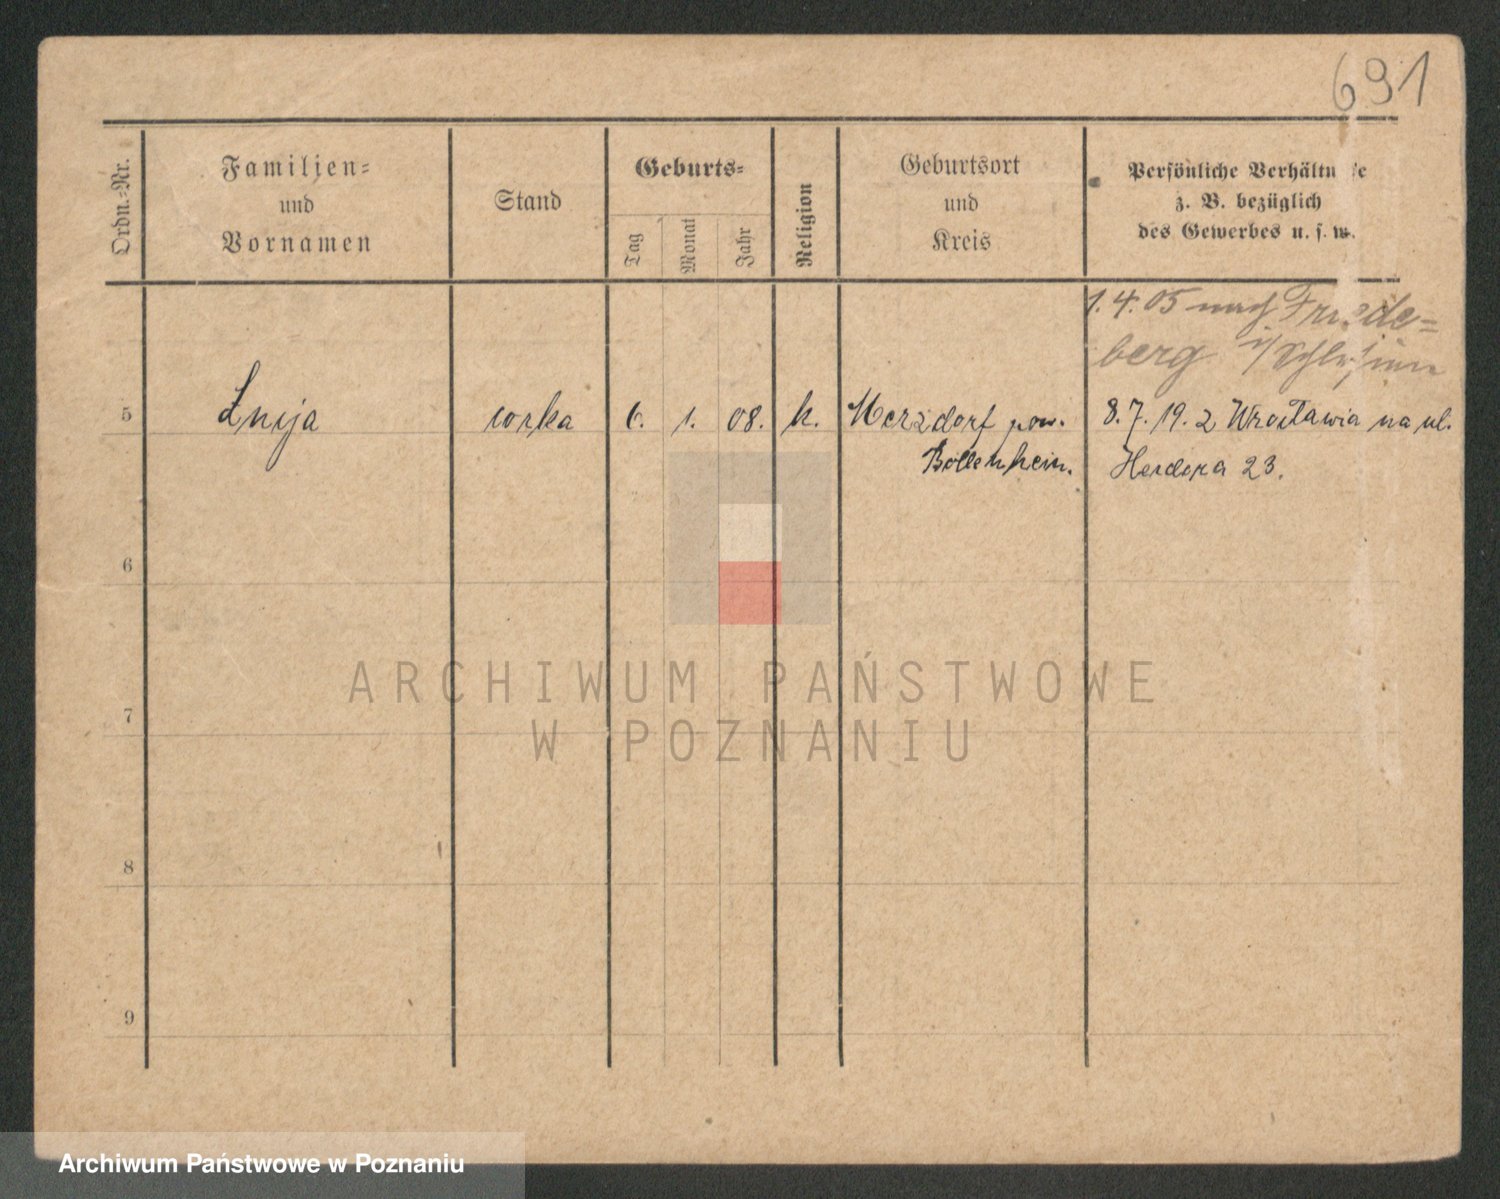 691
Ordn.-Nr.
Familien=
und
Vornamen
Stand
Geburts=
Tag
Monat
Jahr
Religion
Geburtsort
und
Kreis
Persönliche Verhältn se
z. B. bezüglich
des Gewerbes u. s. w.
1. 4. 05 nach Friede=
berg i/Schlesien
5 córka 6. 1. 08. k. Merzdorf pow. 8. 7. 19. z Wrocławia na ul.
Bolkenhein. Herdera 23.
6
7
8
9
ARCHIWUM PAŃSTWOWE
W POZNANIU
Archiwum Państwowe w Poznaniu